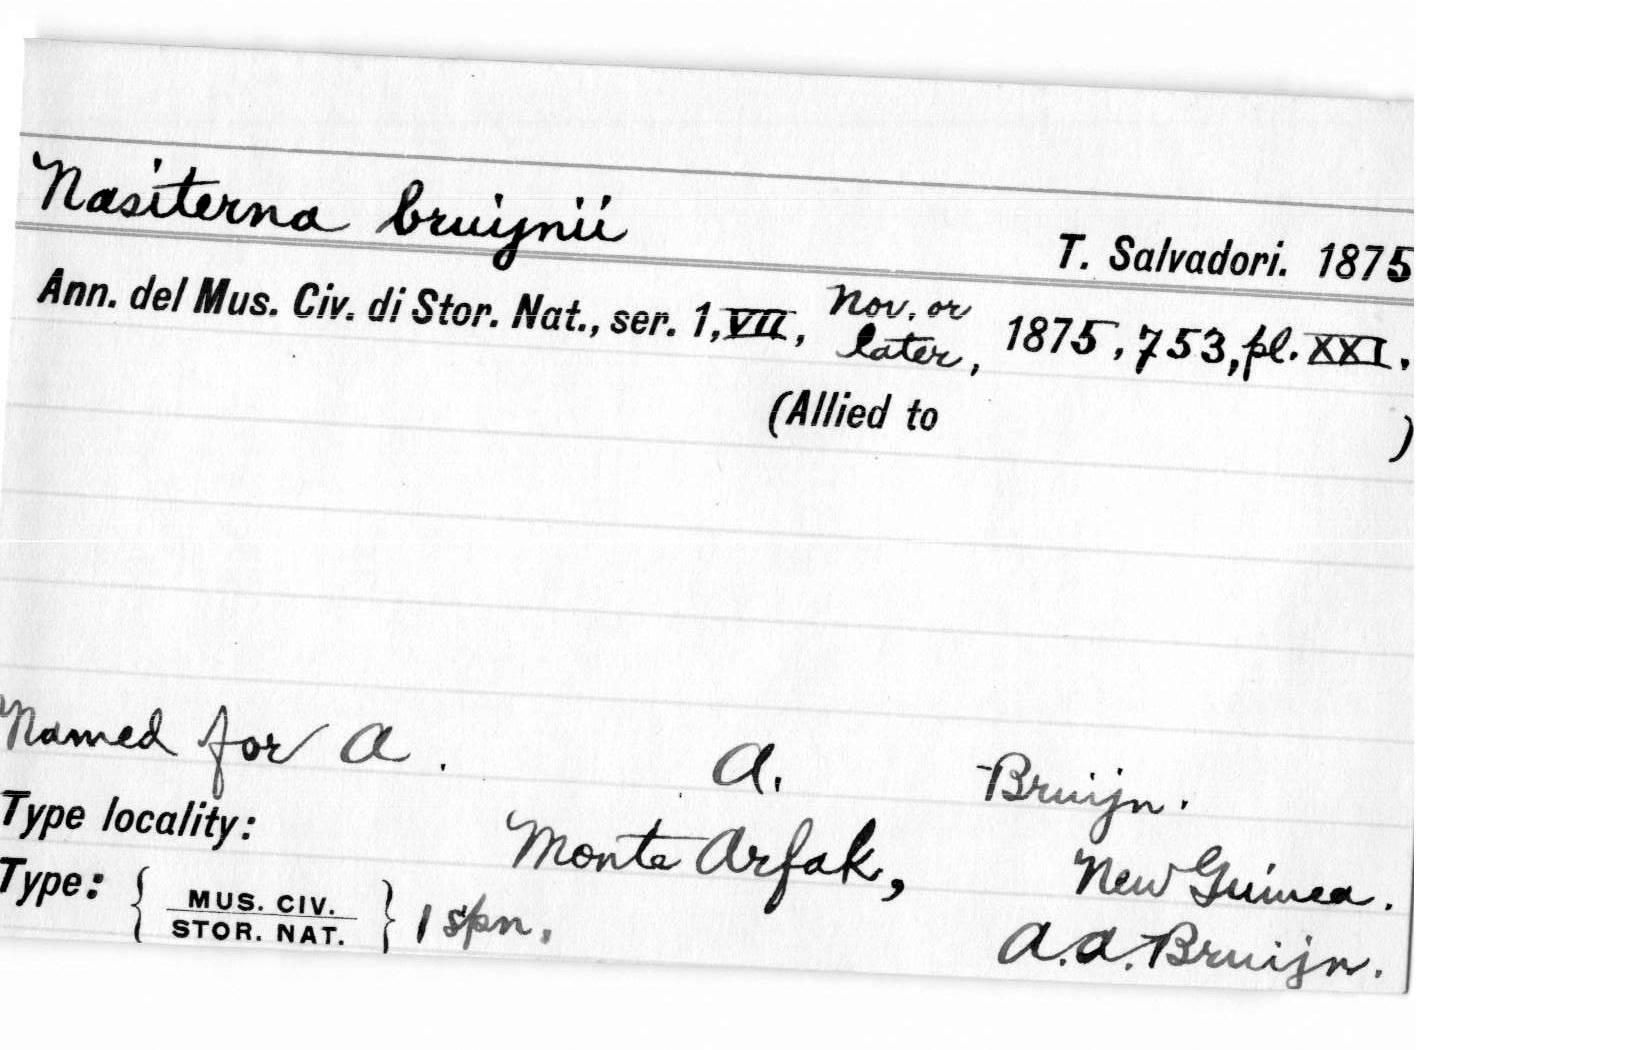 Nasiterna bruijnii
T. Salvadori. 1875
Ann. del Mus. Civ. di Stor. Nat., ser. 1, VII, Nov. or later, 1875, 753, pl. XXI.
(Allied to )
Named for A. A. Bruijn.
Type locality: Monte Arfak, New Guinea.
Type: { MUS. CIV. STOR. NAT. } 1 spn. A.A. Bruijn.